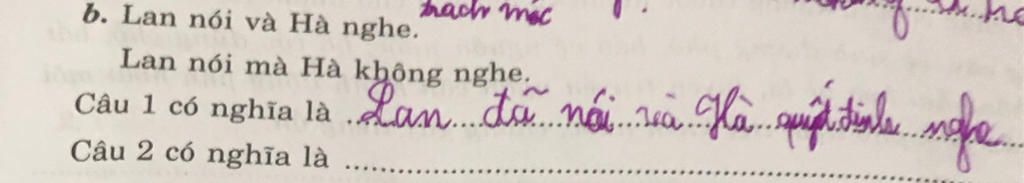 b. Lan nói và Hà nghe. trách móc
Lan nói mà Hà không nghe.
Câu 1 có nghĩa là Lan đã nói và Hà quyết định nghe
Câu 2 có nghĩa là